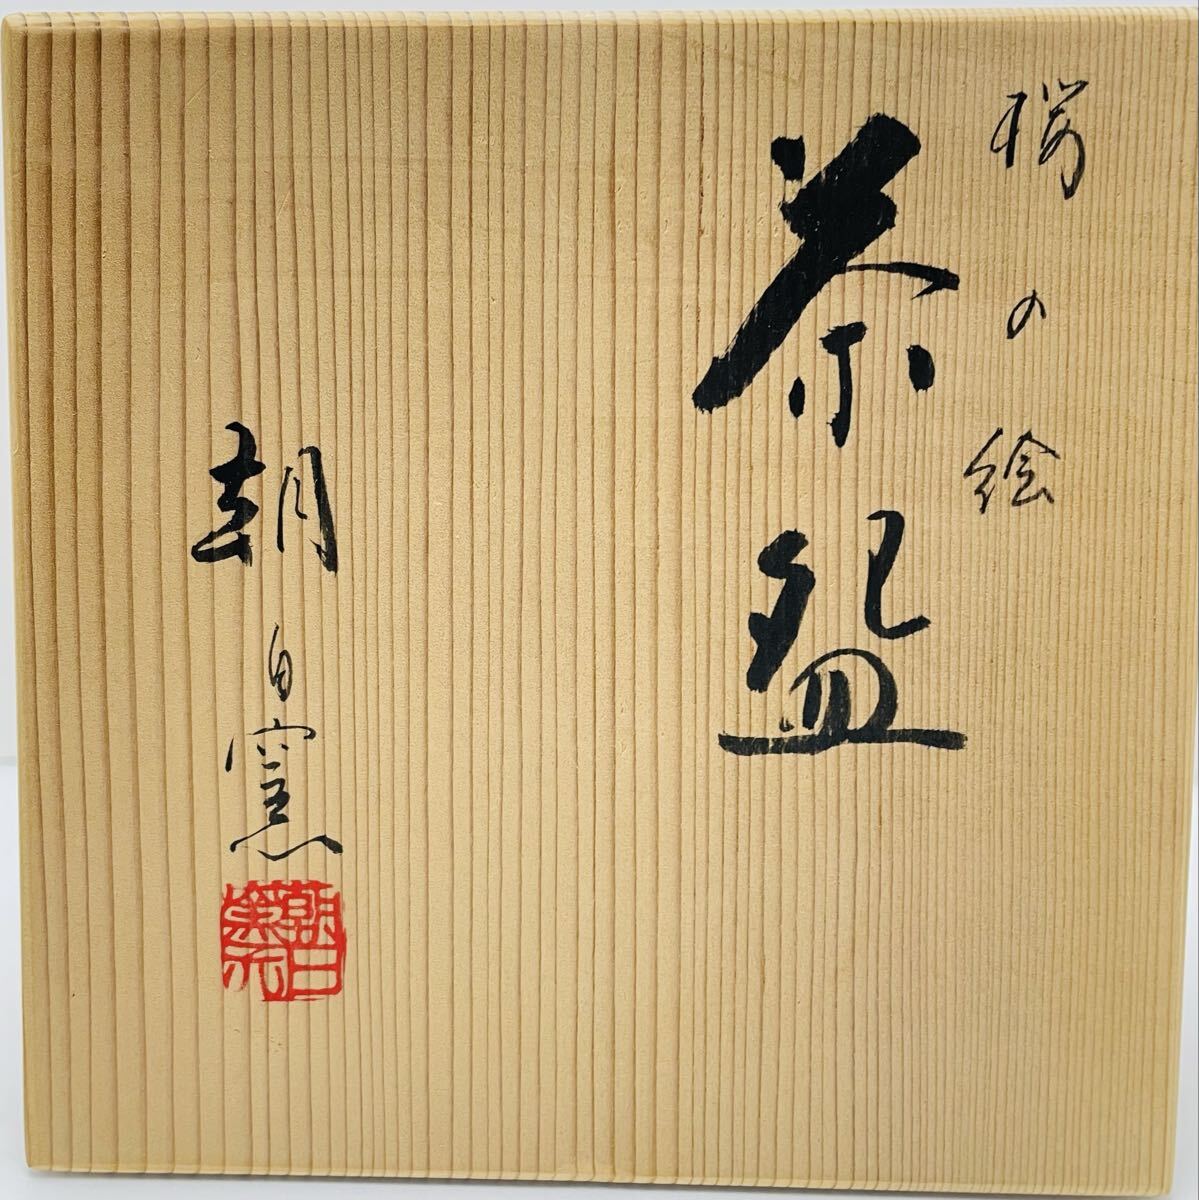 桜の絵
茶盌
朝日窯
朝日